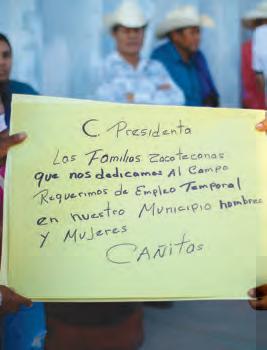 C. Presidenta
Las Familias Zacatecanas
que nos dedicamos Al Campo
Requerimos de Empleo Temporal
en nuestro Municipio hombres
Y Mujeres
CAÑitas